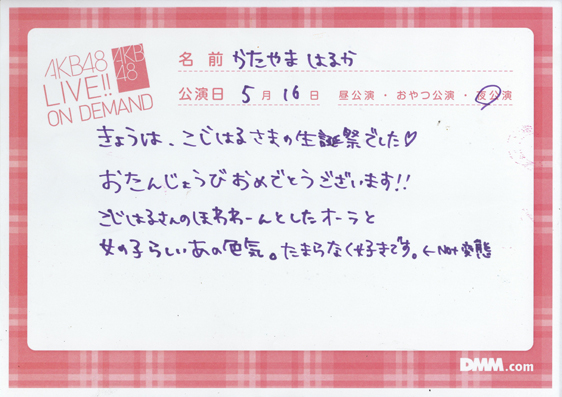 AKB48
LIVE!!
ON DEMAND
AKB
48
名 前 かたやま はるか
公演日 5月 16日 昼公演・おやつ公演・夜公演
きょうは、こじはるさまの生誕祭でした♡
おたんじょうびおめでとうございます!!
こじはるさんのほわわーんとしたオーラと
女の子らしいあの色気。たまらなく好きです。←Not変態
DMM.com